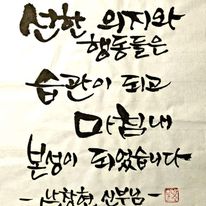 선한 의지와
행동들은
습관이 되고
마침내
본성이 되었습니다
- 남창현 신부님 -